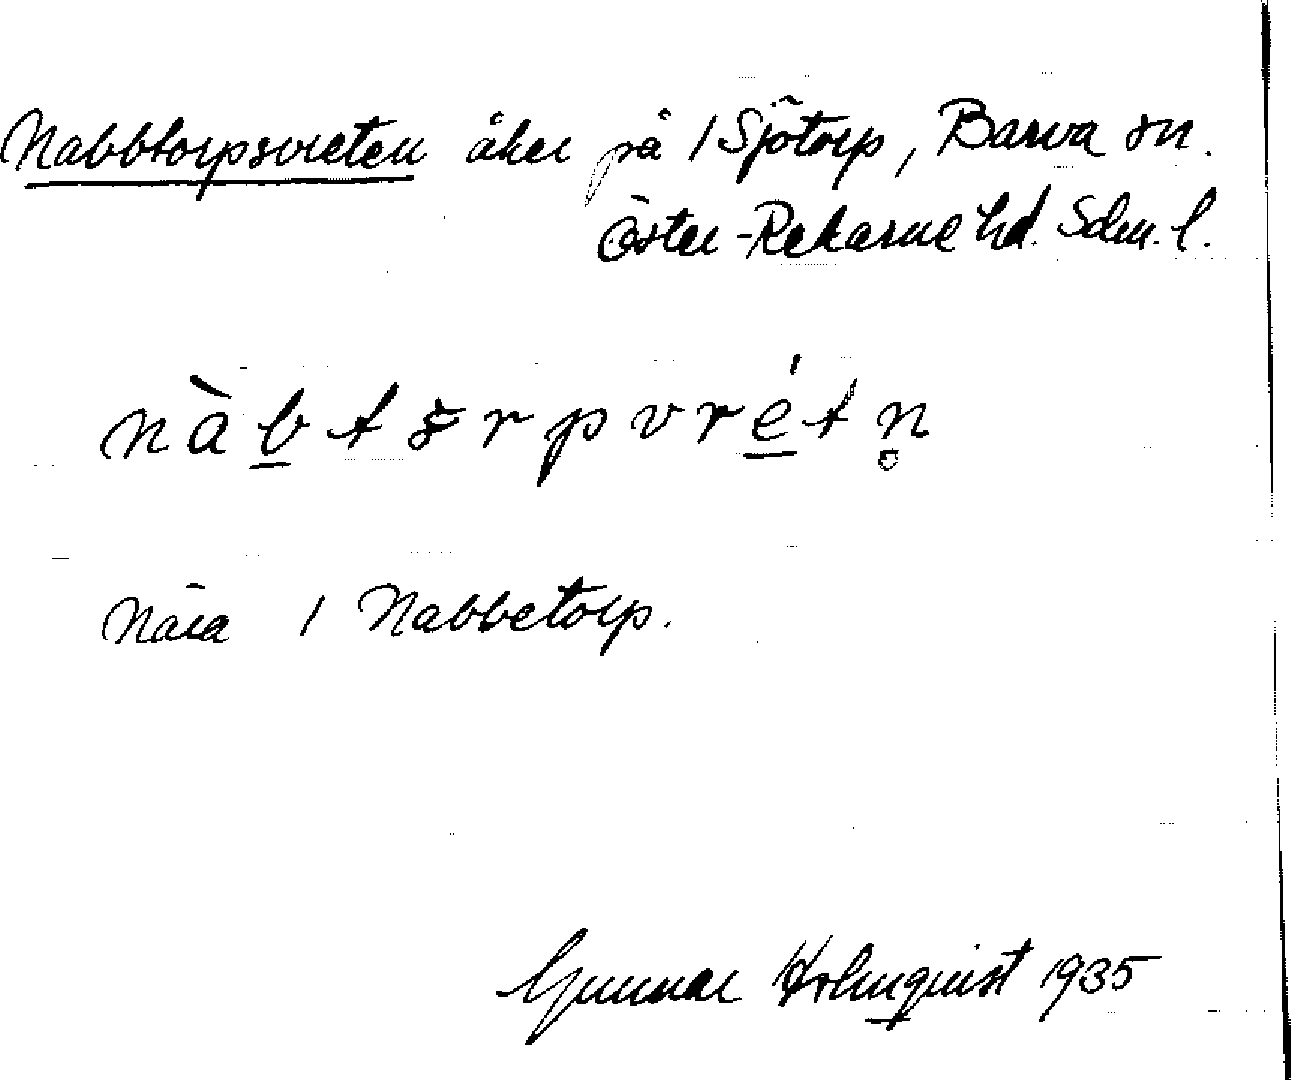 Nabbtorpsvreten åker på / Sjötorp, Barva sn.
Öster-Rekarne hd. Södm. l.
nàb̲tɤrpvré̲tn̥
Nära / Nabbetorp.
Gunnar Holmquist 1935